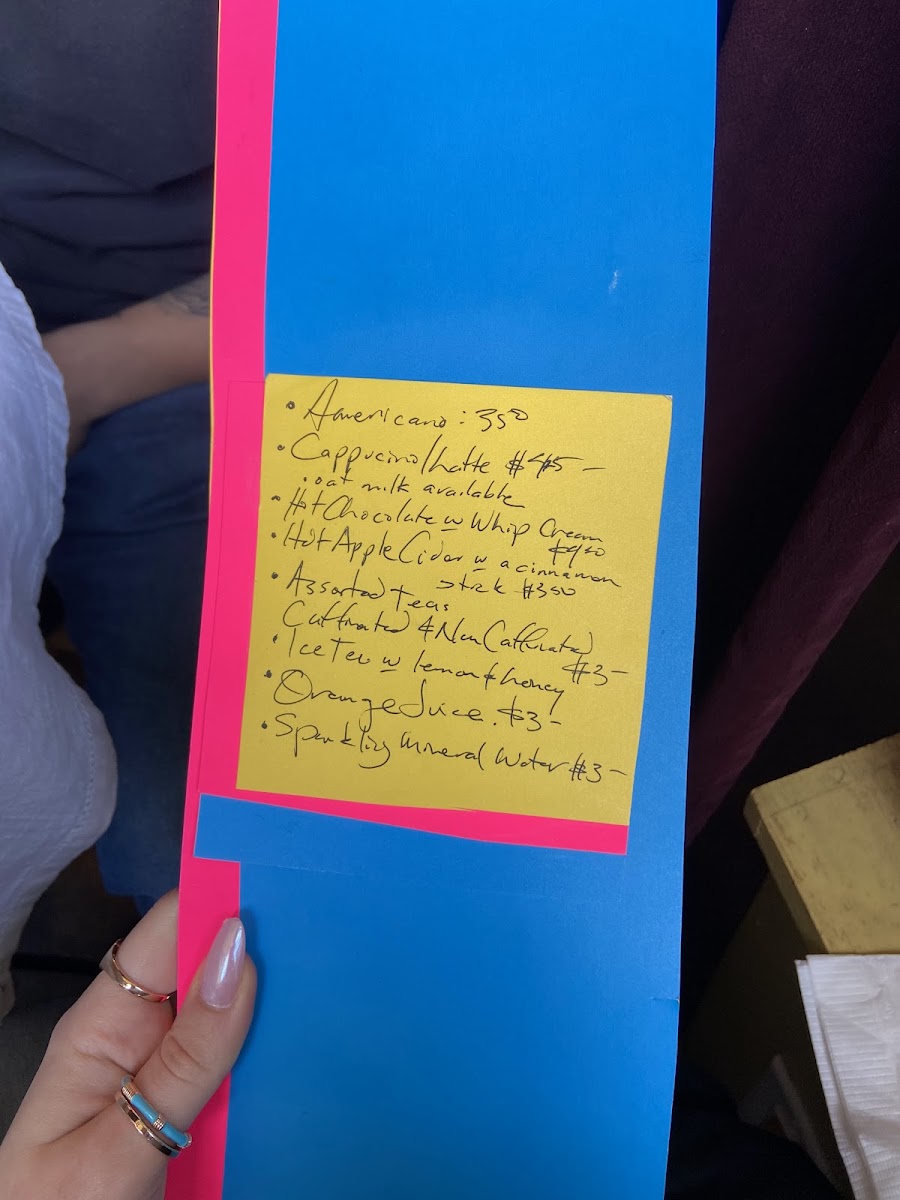 • Americano: 3⁵⁰
• Cappucino/Latte $5 –
• oat milk available
• Hot Chocolate w Whip Cream
$4⁵⁰
• Hot Apple Cider w a cinnamon
stick $3⁵⁰
• Assorted teas
Caffinated & Non Caffinated
$3 –
• Ice Tea w lemon & honey
• Orange Juice. $3 –
• Sparkling Mineral Water $3 –